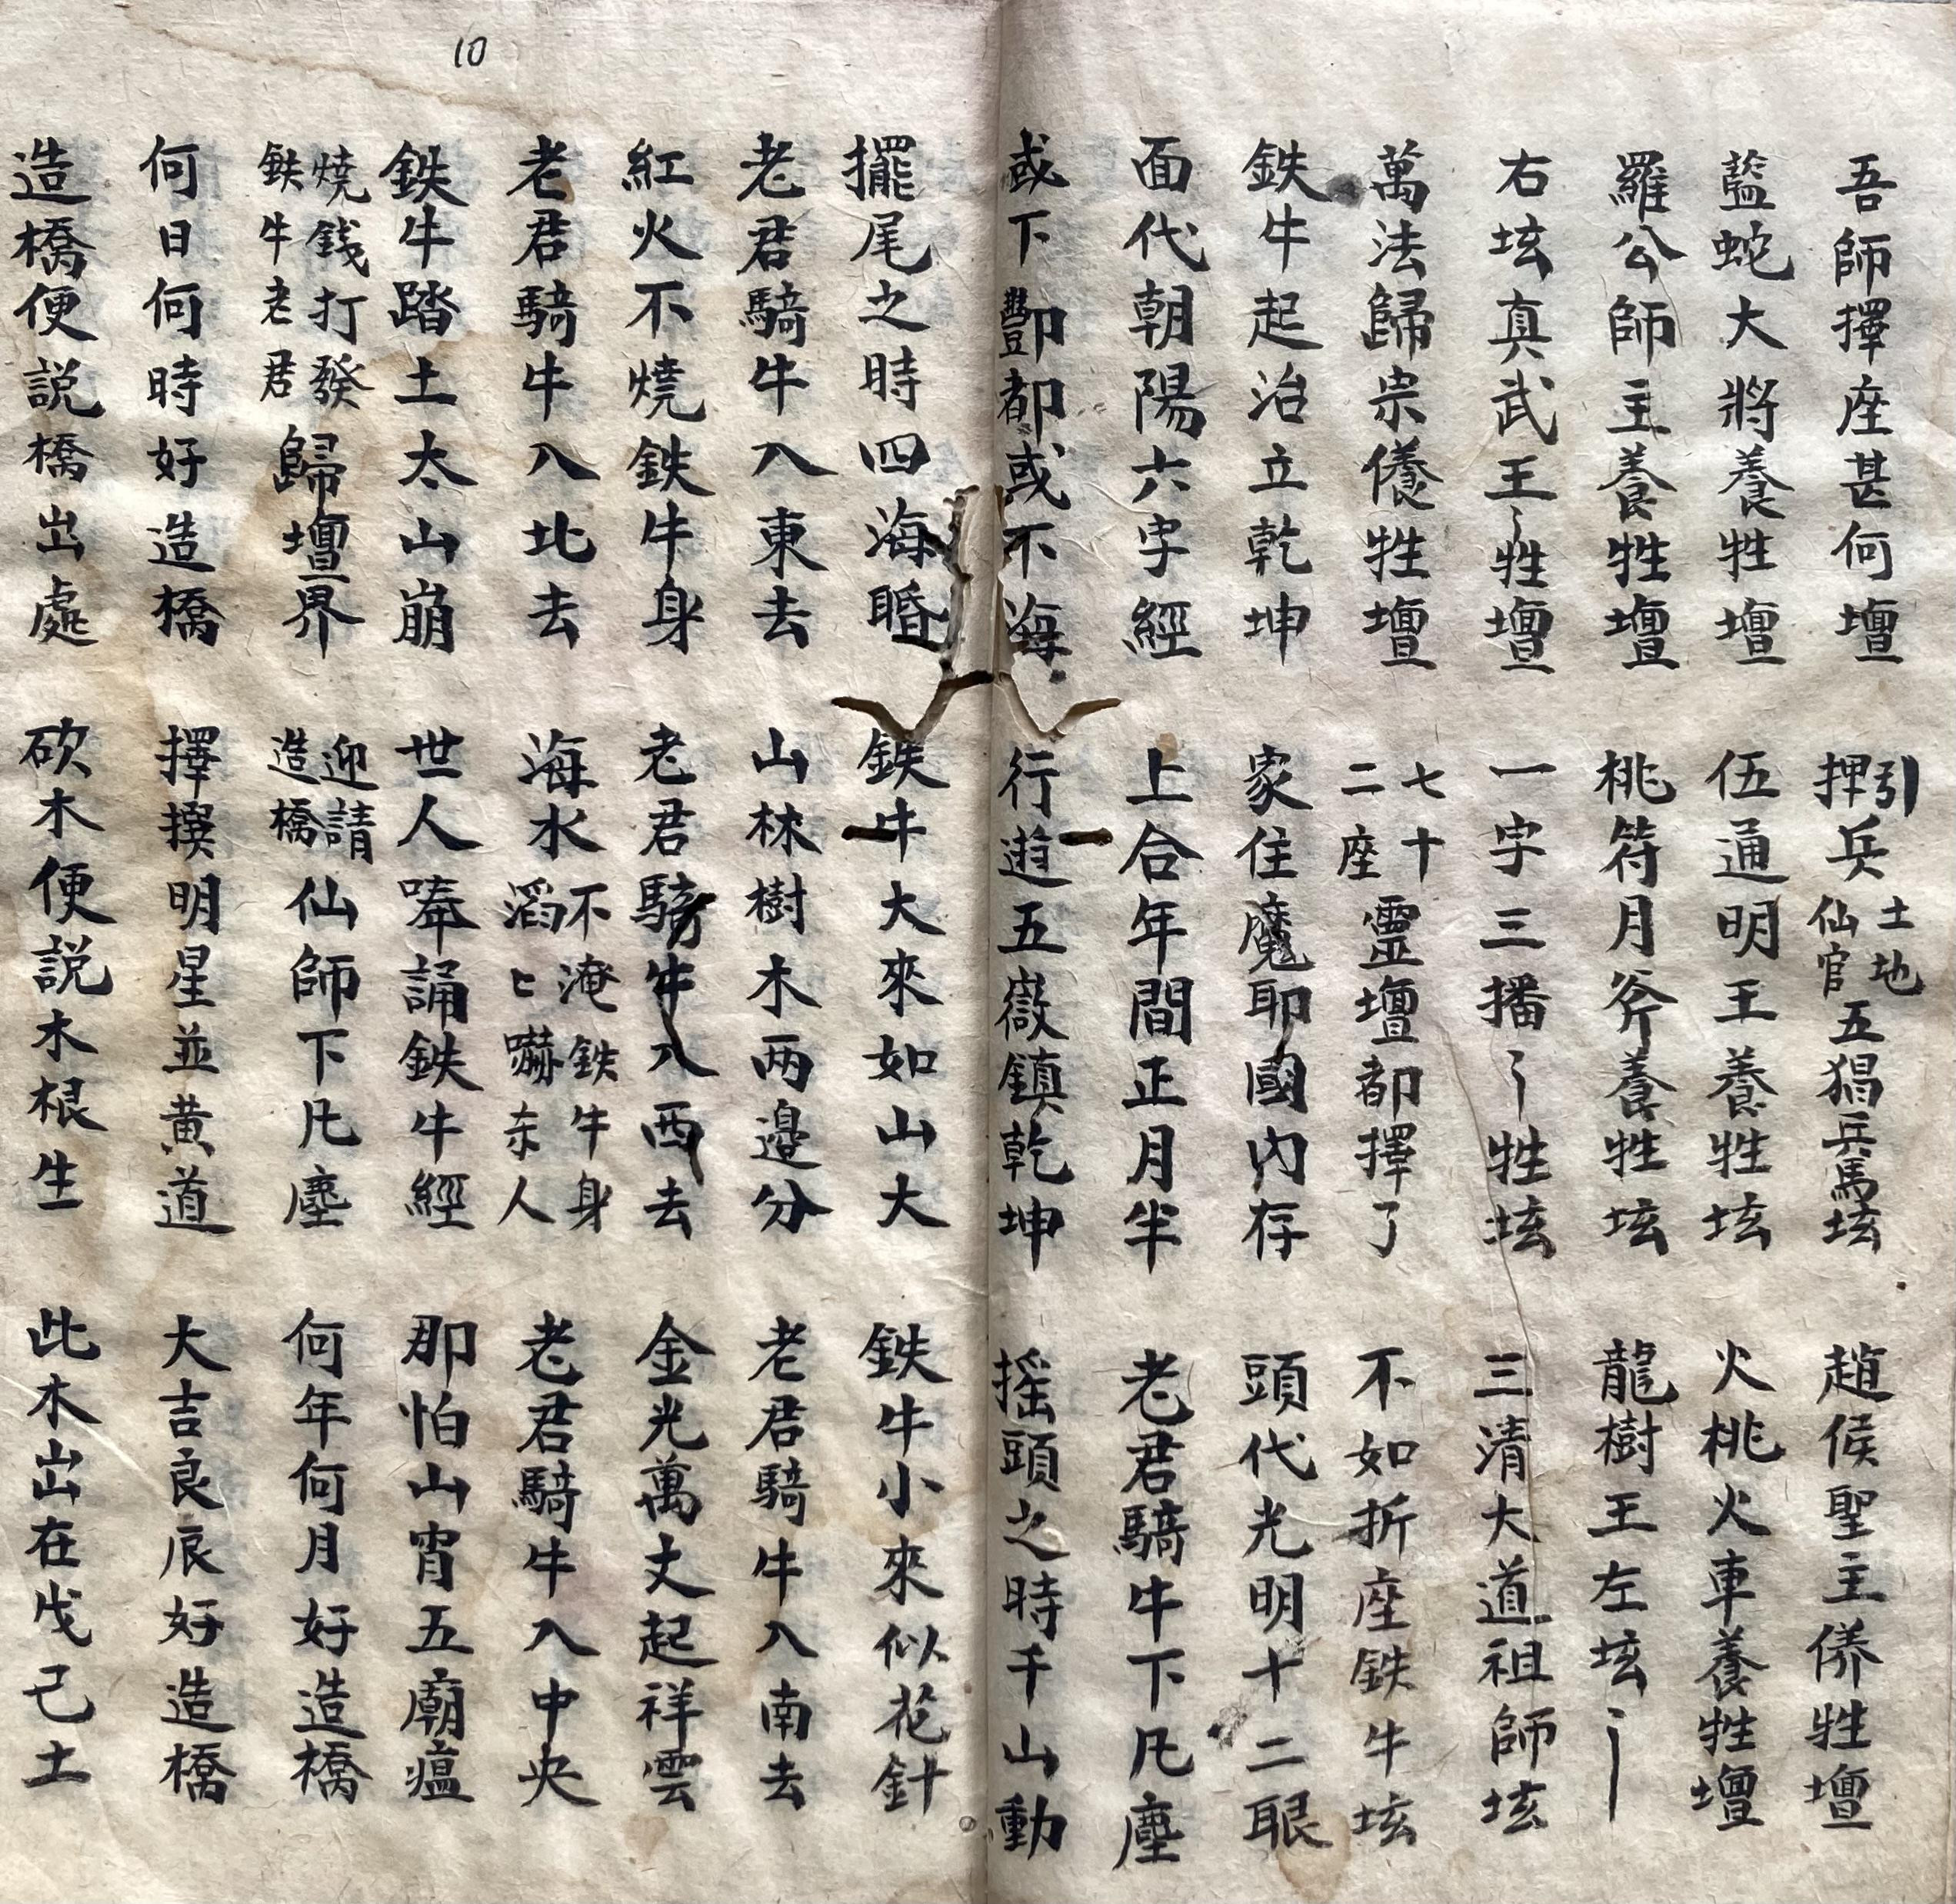 吾師擇座甚何壇 引押兵土地仙官五猖兵馬坛 趙侯聖主侢牲壇
藍蛇大將養牲壇 伍通明王養牲坛 火桃火車養牲壇
羅公師主養牲壇 桃符月斧養牲坛 龍樹王左坛
右坛真武王〻牲壇 一字三播〻牲坛 三清大道祖師坛
萬法歸宗儀牲壇 七十二座靈壇都擇了 不如折座鉄牛坛
鉄牛起治立乾坤 家住魔耶國內存 頭代光明十二眼
面代朝陽六字經 上合年間正月半 老君騎牛下凡塵
或下酆都或下海 行遊五嶽鎮乾坤 摇頭之時千山動
擺尾之時四海昏 鉄牛大來如山大 鉄牛小來似花針
老君騎牛入東去 山林樹木两邉分 老君騎牛入南去
紅火不燒鉄牛身 老君騎牛入西去 金光萬丈起祥雲
老君騎牛入北去 海水不淹鉄牛身滔匕嚇东人 老君騎牛入中央
鉄牛踏土太山崩 世人奉誦鉄牛經 那怕山宵五廟瘟
燒錢打發鉄牛老君歸壇界 迎請造橋仙師下凡塵 何年何月好造橋
何日何時好造橋 擇撰明星並黄道 大吉良辰好造橋
造橋便説橋出處 砍木便説木根生 此木出在戊己土
10